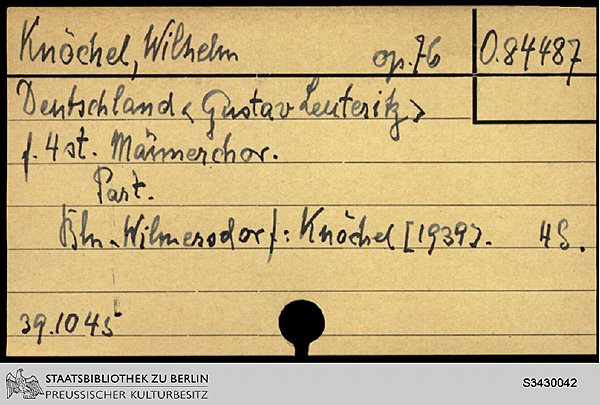 Knöchel, Wilhelm op. 76 O.84487
Deutschland <Gustav Leuteritz>
f. 4 st. Männerchor.
Part.
Bln.-Wilmersdorf: Knöchel [1939]. 4 S.
39.1045
STAATSBIBLIOTHEK ZU BERLIN
PREUSSISCHER KULTURBESITZ
S3430042